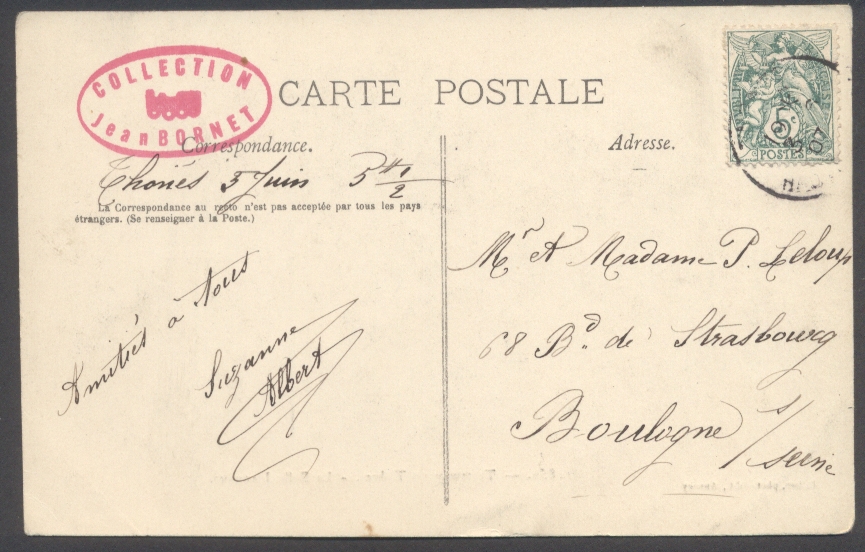 COLLECTION
Jean BORNET
CARTE POSTALE
Correspondance.
Adresse.
Thônes 5 Juin 5 h 1/2
La Correspondance au recto n'est pas acceptée par tous les pays
étrangers. (Se renseigner à la Poste.)
Amitiés à tous
Suzanne
Albert
5
POSTES
Mr et Madame P. Leloup
68 Bd. de Strasbourg
Boulogne s/
seine